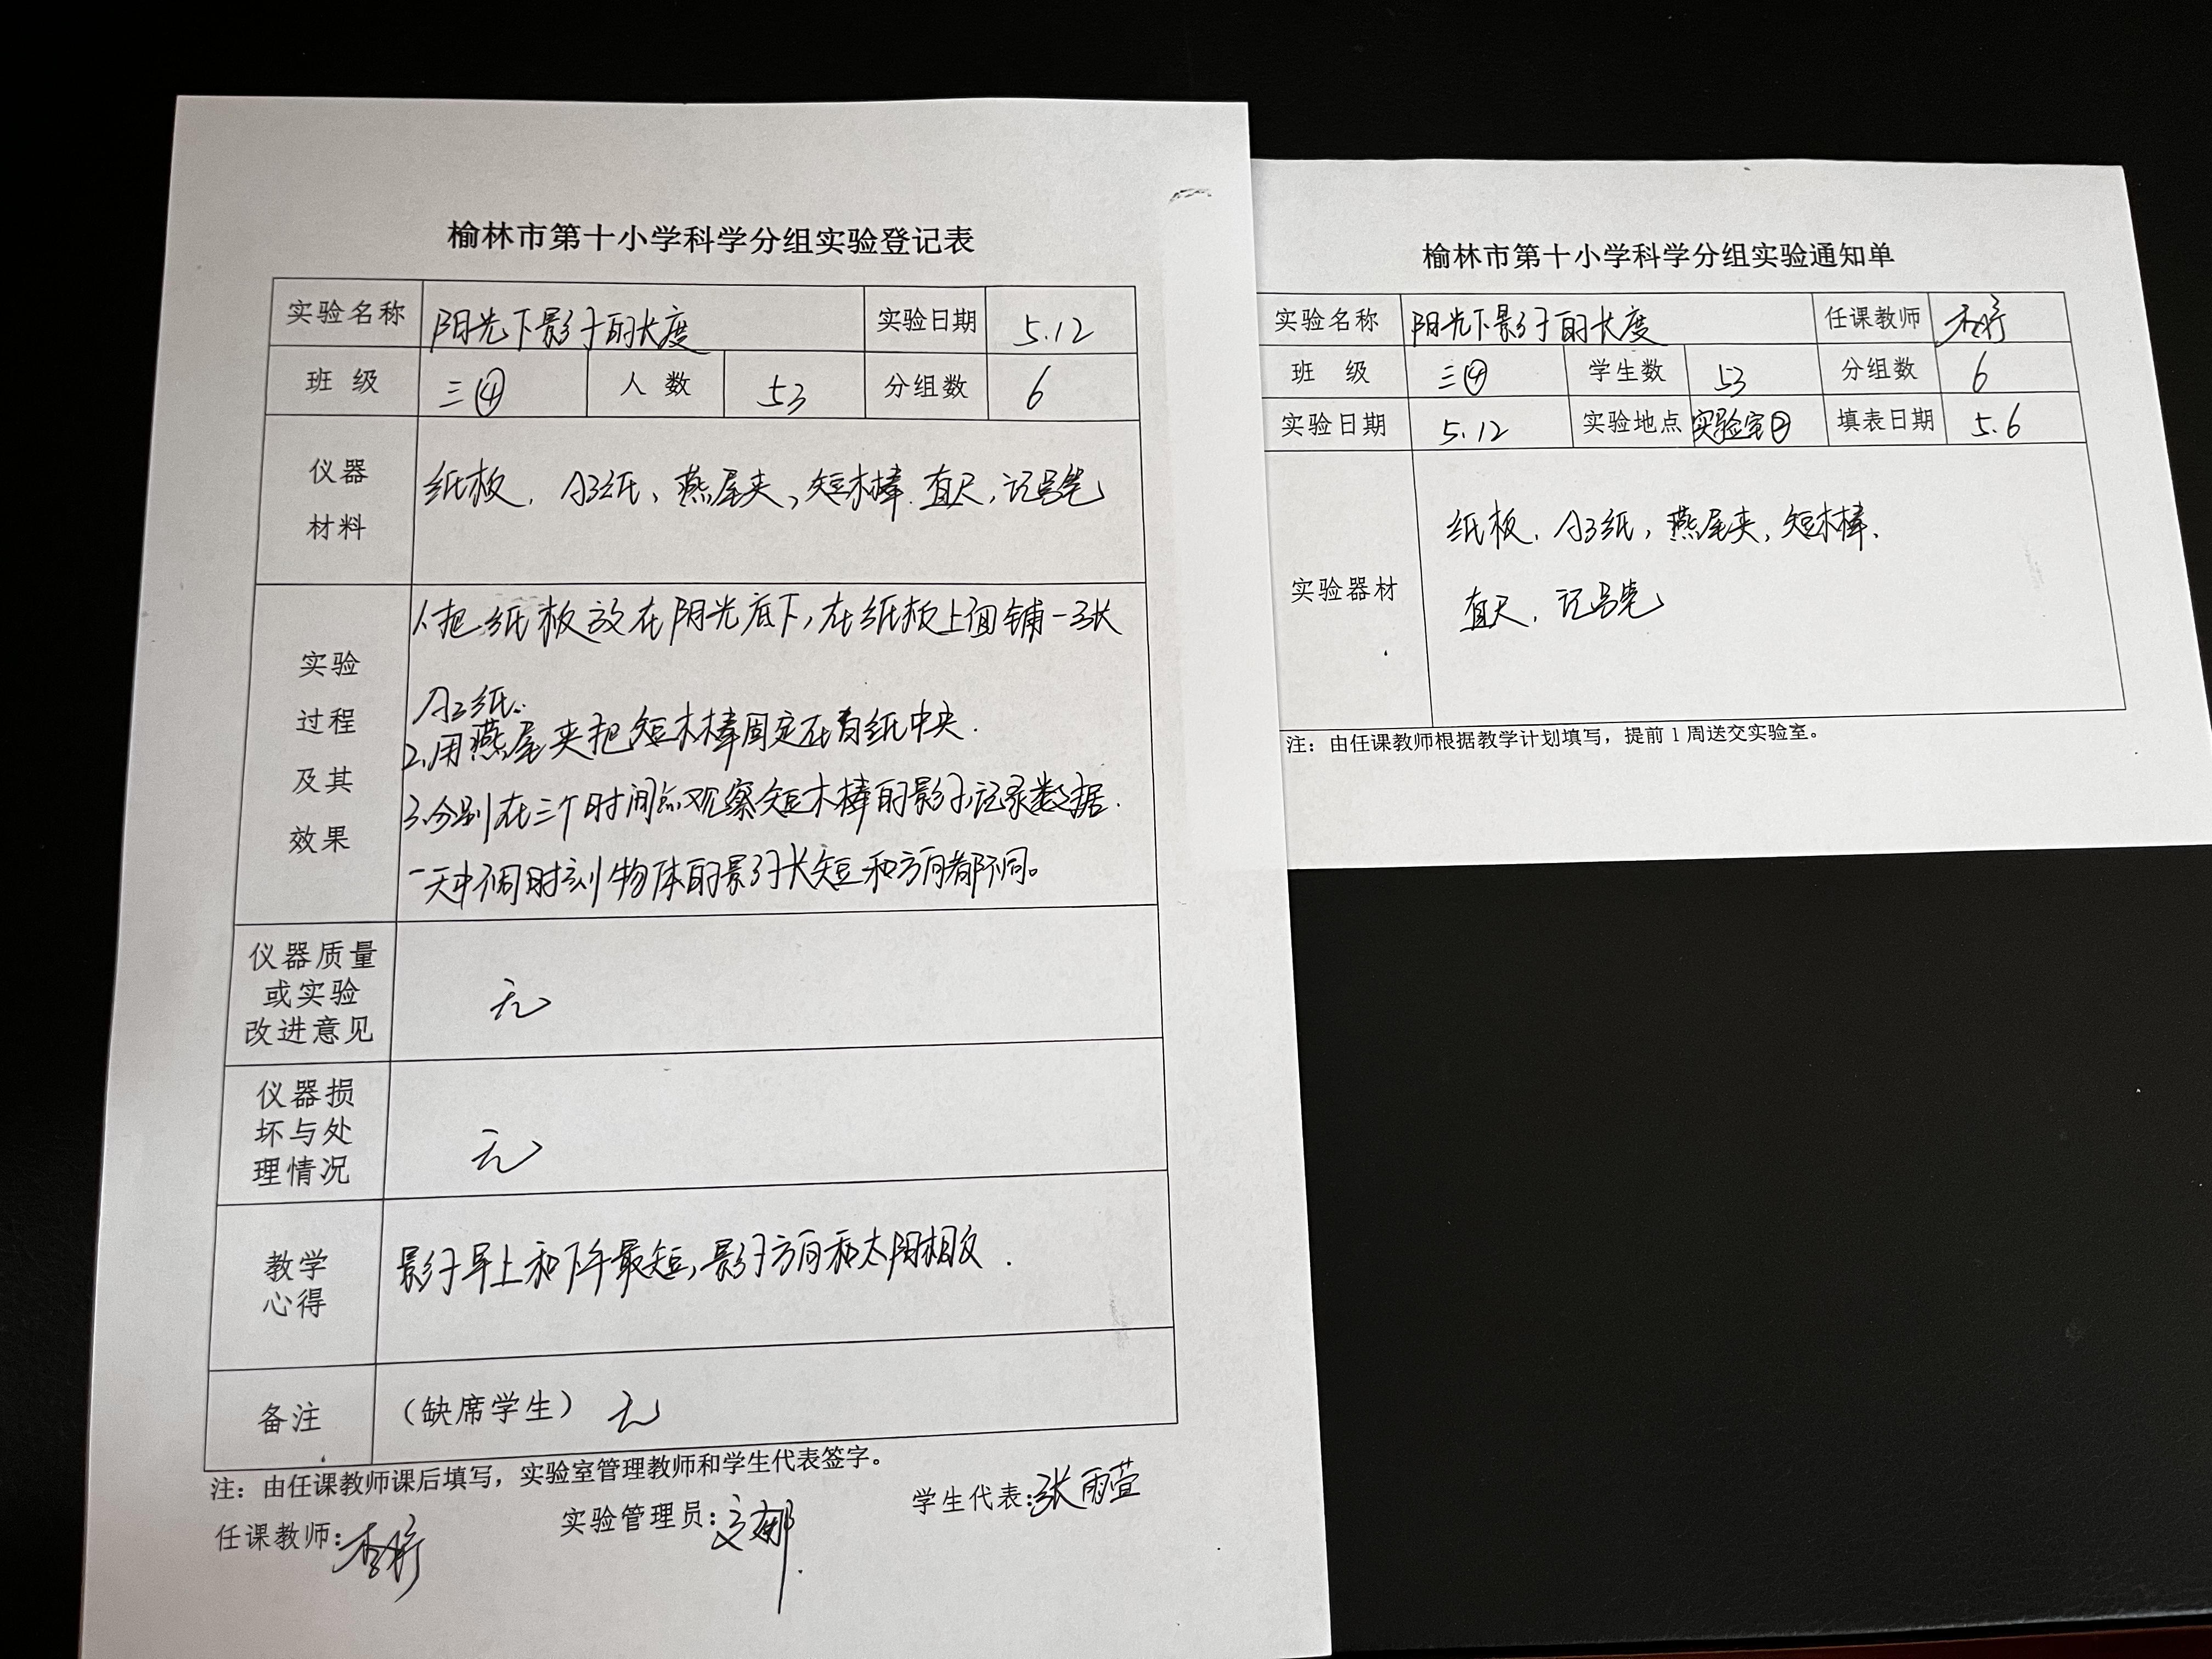 榆林市第十小学科学分组实验登记表
实验名称 阳光下影子的长度 实验日期 5.12
班 级 三④ 人 数 53 分组数 6
仪器
材料
纸板、A3纸、燕尾夹、短木棒、直尺、记号笔
实验
过程
及其
效果
1.把纸板放在阳光底下,在纸板上面铺一张
A3纸.
2.用燕尾夹把短木棒固定在白纸中央.
3.分别在三个时间点观察短木棒的影子,记录数据.
一天中不同时刻物体的影子长短和方向都不同。
仪器质量
或实验
改进意见
无
仪器损
坏与处
理情况
无
教学
心得
影子早上和下午最短,影子方向和太阳相反.
备注 (缺席学生) 无
注：由任课教师课后填写，实验室管理教师和学生代表签字。
任课教师: 实验管理员: 学生代表:张雨萱
榆林市第十小学科学分组实验通知单
实验名称 阳光下影子的长度 任课教师
班 级 三④ 学生数 53 分组数 6
实验日期 5.12 实验地点 实验室② 填表日期 5.6
实验器材
纸板、A3纸,燕尾夹,短木棒、
直尺、记号笔
注：由任课教师根据教学计划填写，提前1周送交实验室。